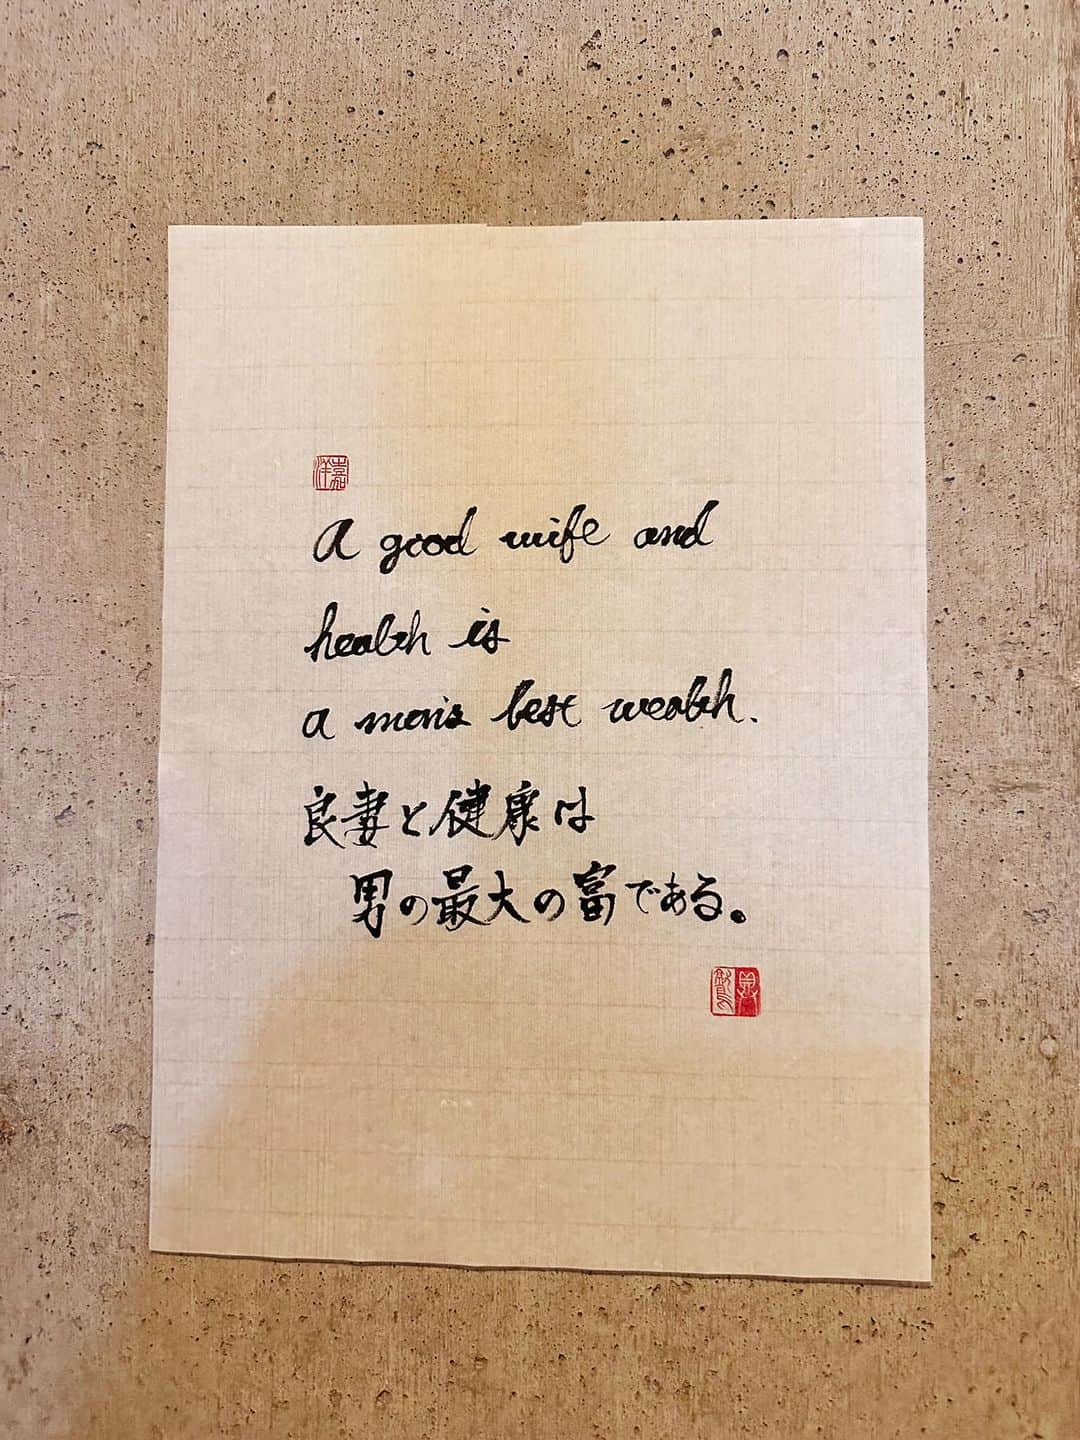 A good wife and
health is
a man's best wealth.
良妻と健康は
男の最大の富である。